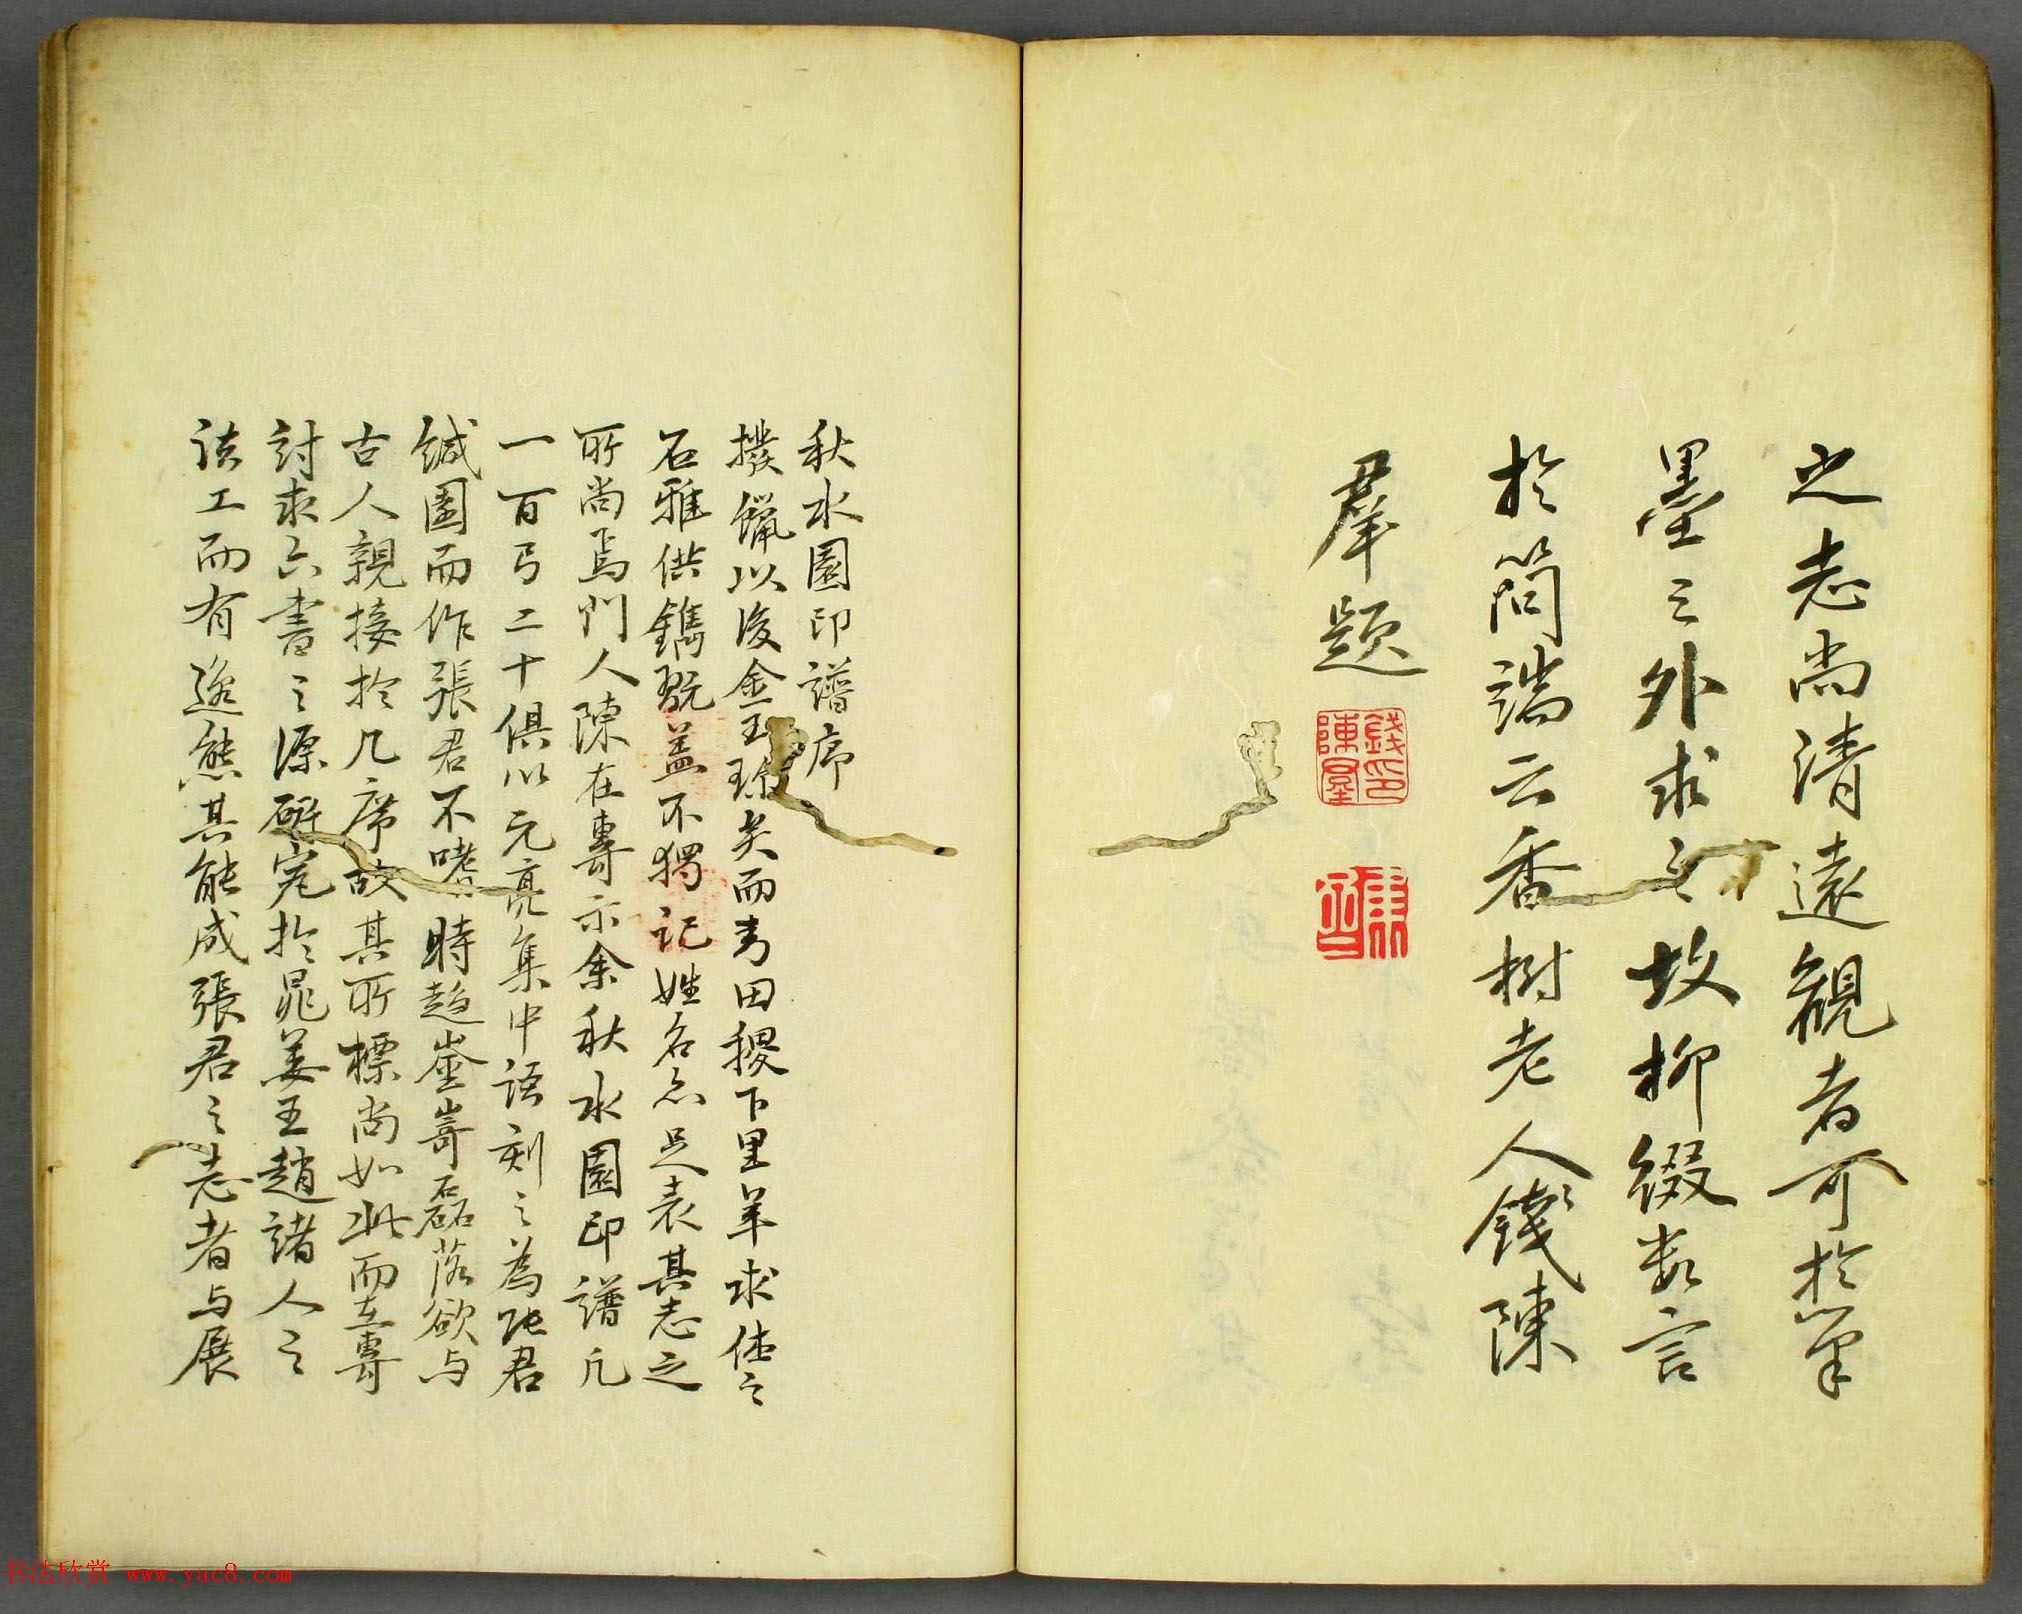 之志尚清遠觀者可於筆
墨之外求之故抑綴數言
於簡端云香樹老人錢陳
羣題
錢印陳羣
秋水園印譜序
撥蠟以後金玉琢矣而青田稷下里羊求使之
石雅供鐫翫蓋不獨記姓名亦足表其志之
所尚焉門人陳在專示余秋水園印譜凡
一百弓二十俱以元亮集中語刻之為張君
緘園而作張君不嗜時趨崟嵜磊落欲与
古人親接於几席故其所標尚如此而在專
討求六書之源研究於晁姜王趙諸人之
法工而有逸態其能成張君之志者与展
书法欣赏 www.yac8.com